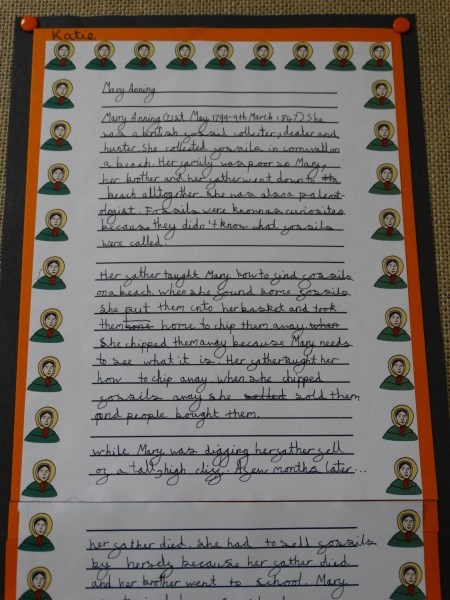 Katie
Mary Anning
Marry Anning (21st May 1799-9th March 1847) She
was a british fossil collecter, dealer and
hunter. She collected fossils in cornwall on
a beach. Her family was poor so Mary,
her brother and her father went down to the
beach alltogether. she was also a palent-
ologist. Fossils were known as curiosites
because they didn't know what fossils
were called.
Her father taught Mary how to find fossils
on a beach. when she found some fossils
she put them into her basket and took
them home to chip them away
she chipped them away because Mary needs
to see what it is. Her father taught her
how to chip away when she chipped
fossils away she sold them
and people bought them.
while Mary was digging her father fell
of a tall, high cliff. A few months later...
her father died. She had to sell fossils
by herself because her father died
and her brother went to school. Mary